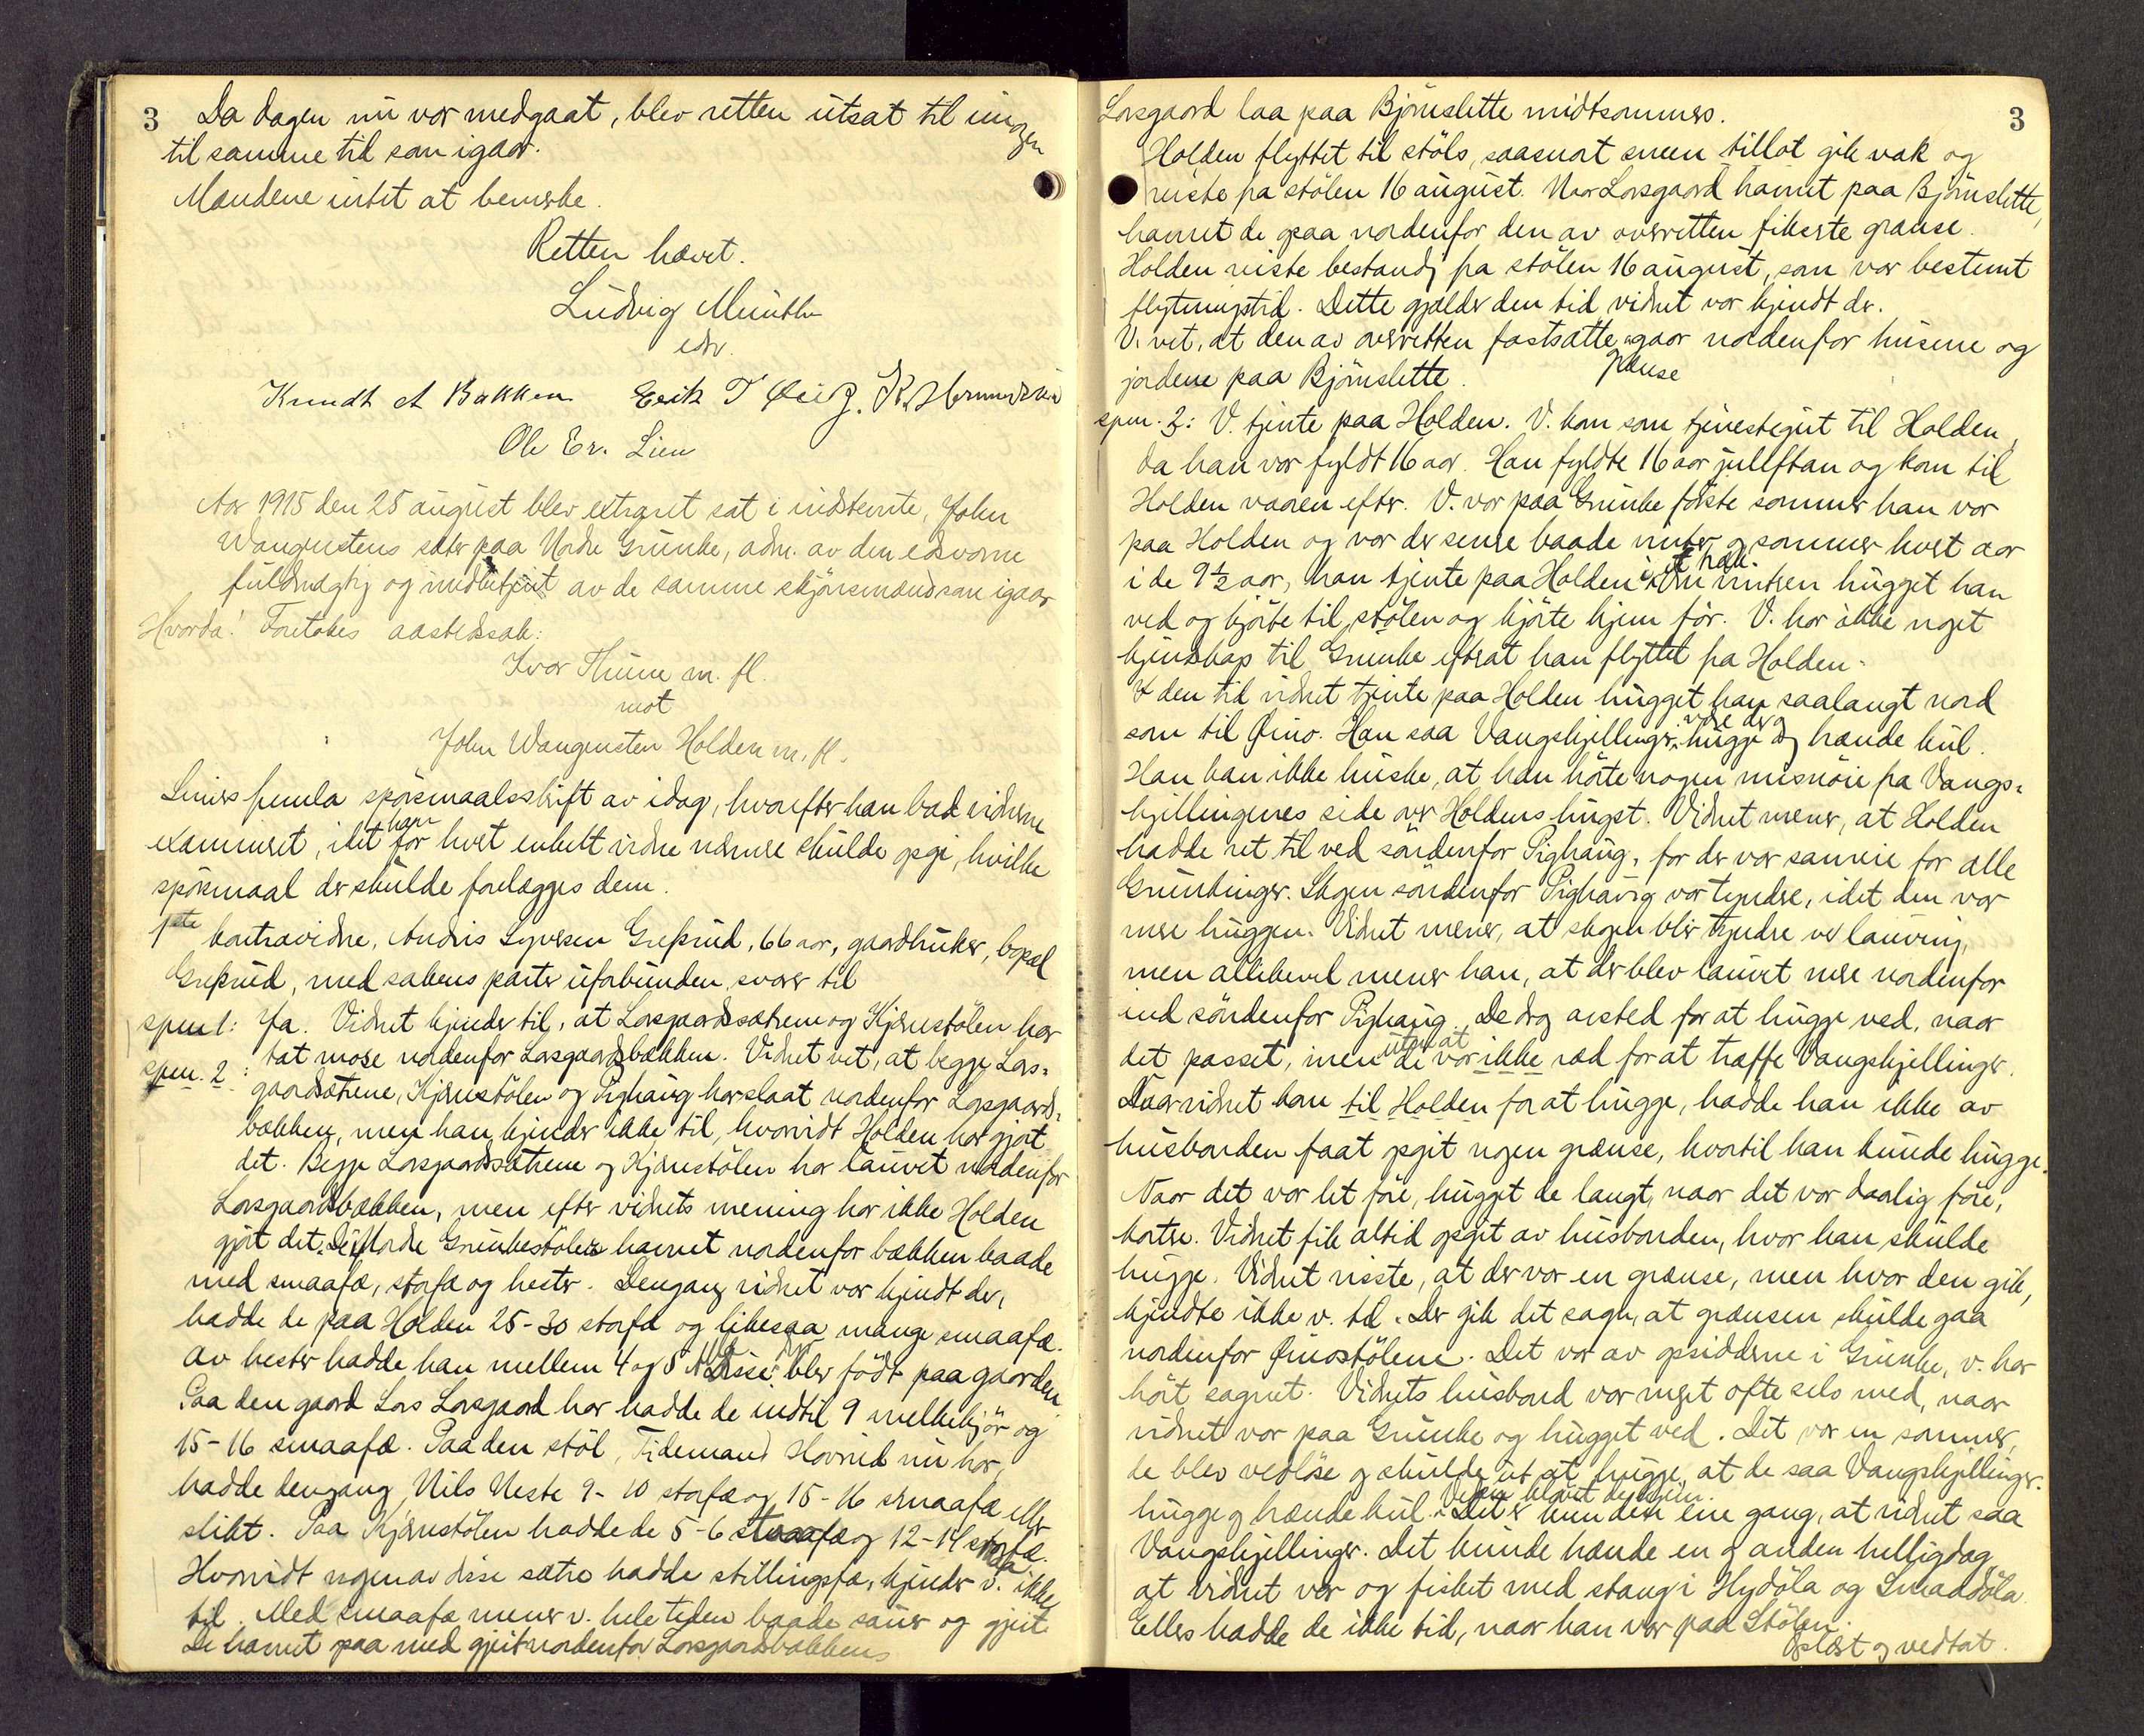 3
Da dagen nu var medgaat, blev retten utsat til imorgen
til samme tid som igaar.
Mændene intet at bemerke.
Retten hævet.
Ludvig Munthe
edv.
Knudt A Bakken Erik T K. Hermundsen
Ole Er. Lien
Aar 1915 den 25 august blev extraret sat i indstevnte, John
Wangenstens sæter paa Nordre Grunke, adm. av den edsvorne
fuldmægtig og medbetjent av de samme skjønsmænd som igaar
Hvorda! Foretokes aastedssak:
Ivar Thune m. fl.
mot
John Wangensten Holden m. fl.
Liniers fremla spørsmaalsskrift av idag, hvorefter han bad vidnerne
examineret, idet han for hvert enkelt vidne nærmere skulde opgi, hvilke
spørsmaal der skulde forelægges dem.
1ste kontravidne, Andris Syversen Grefsrud, 66 aar, gaardbruker, bopæl
Grefsrud, med sakens parter uforbunden, svarer til
spm 1: Ja. Vidnet kjender til, at Lorsgaardssætrene og Kjørnstølen har
tat mose nordenfor Lorsgaardsbækken. Vidnet vet, at begge Lors-
spm. 2: gaardsætrene, Kjørnstølen og Pighaug har slaat nordenfor Lorsgaards-
bækken, men han kjender ikke til, hvorvidt Holden har gjort
det. Begge Lorsgaardssætrene og Kjørnstølen har lauvet nordenfor
Lorsgaardsbækken, men efter vidnets mening har ikke Holden
gjort det. Nordre Grunkestøler havnet nordenfor bækken baade
med smaafæ, storfæ og hester. Dengang vidnet var kjendt der,
hadde de paa Holden 25-30 storfæ og likesaa mange smaafæ.
Av hester hadde han mellem 4 og 5. Disse blev født paa gaarden
Paa den gaard Lars Lorsgaard har hadde de indtil 9 melkekjør og
15-16 smaafæ. Paa den støl, Tidemand Hovrud nu har,
hadde dengang Nils Neste 9-10 storfæ og 15-16 smaafæ eller
slikt. Paa Kjørnstølen hadde de 5-6 storfæ og 12-14 smaafæ.
Hvorvidt nogen av disse sætre hadde stillingsfæ, kjender v. ikke
til. Med smaafæ mener v. hele tiden baade sauer og gjeit.
De havnet paa med gjeit nordenfor Lorsgaardsbækken
3
Lorsgaard laa paa Bjørnslette midtsommers.
Holden flyttet til støls, saasnart sneen tillot gik vak og
reiste fra stølen 16 august. Naar Lorsgaard havnet paa Bjørnslette,
havnet de ogsaa nordenfor den av overretten fikserte grænse.
Holden reiste bestandig fra stølen 16 august, som var bestemt
flytningstid. Dette gjælder den tid vidnet var kjendt der.
V. vet, at den av overretten fastsatte grænse gaar nordenfor husene og
jordene paa Bjørnslette.
spm. 3: V. tjente paa Holden. V. kom som tjenestegut til Holden,
da han var fyldt 16 aar. Han fyldte 16 aar juleftan og kom til
Holden vaaren efter. V. var paa Grunke første sommer han var
paa Holden og var der senere baade vinter og sommer hvert aar
i de 9½ aar, han tjente paa Holden. Om vintren hugget han
ved og kjørte til stølen og kjørte hjem fôr. V. har ikke noget
kjendskap til Grunke efterat han flyttet fra Holden.
I den tid vidnet tjente paa Holden hugget han saalangt nord
som til Øino. Han saa Vangskjellinger hugge og brænde kul.
Han kan ikke huske, at han hørte nogen misnøie fra Vangs-
kjellingenes side over Holdens hugst. Vidnet mener, at Holden
hadde ret til ved søndenfor Pighaug, for der var sameie for alle
Grunkinger. Skogen søndenfor Pighaug var tyndre, idet den var
mere huggen. Vidnet mener, at skogen blir tyndre ved lauving,
men allikevel mener han, at der blev lauvet mere nordenfor
end søndenfor Pighaug. De drog avsted for at hugge ved, naar
det passet, uten at de var ikke ræd for at træffe Vangskjellinger.
Naar vidnet kom til Holden for at hugge, hadde han ikke av
husbonden faat opgit nogen grænse, hvortil han kunde hugge.
Naar det var let føre, hugget de langt, naar det var daarlig føre,
kortre. Vidnet fik altid opgit av husbonden, hvor han skulde
hugge. Vidnet visste, at der var en grænse, men hvor den gik,
kjendte ikke v. til. Der gik det sagn, at grænsen skulde gaa
nordenfor Øinostølene. Det var av opsidderne i Grunke, v. har
hørt sagnet. Vidnets husbond var meget ofte selv med, naar
vidnet var paa Grunke og hugget ved. Det var en sommer,
de blev vedløse og skulde ut at hugge, at de saa Vangskjellinger
hugge og brænde kul. Det er kun den ene gang, at vidnet saa
Vangskjellinger. Det kunde hænde en og anden helligdag
at vidnet var og fisket med stang i Hydøla og Smaadøla
Ellers hadde de ikke tid, naar han var paa Stølen.
Oplæst og vedtat.